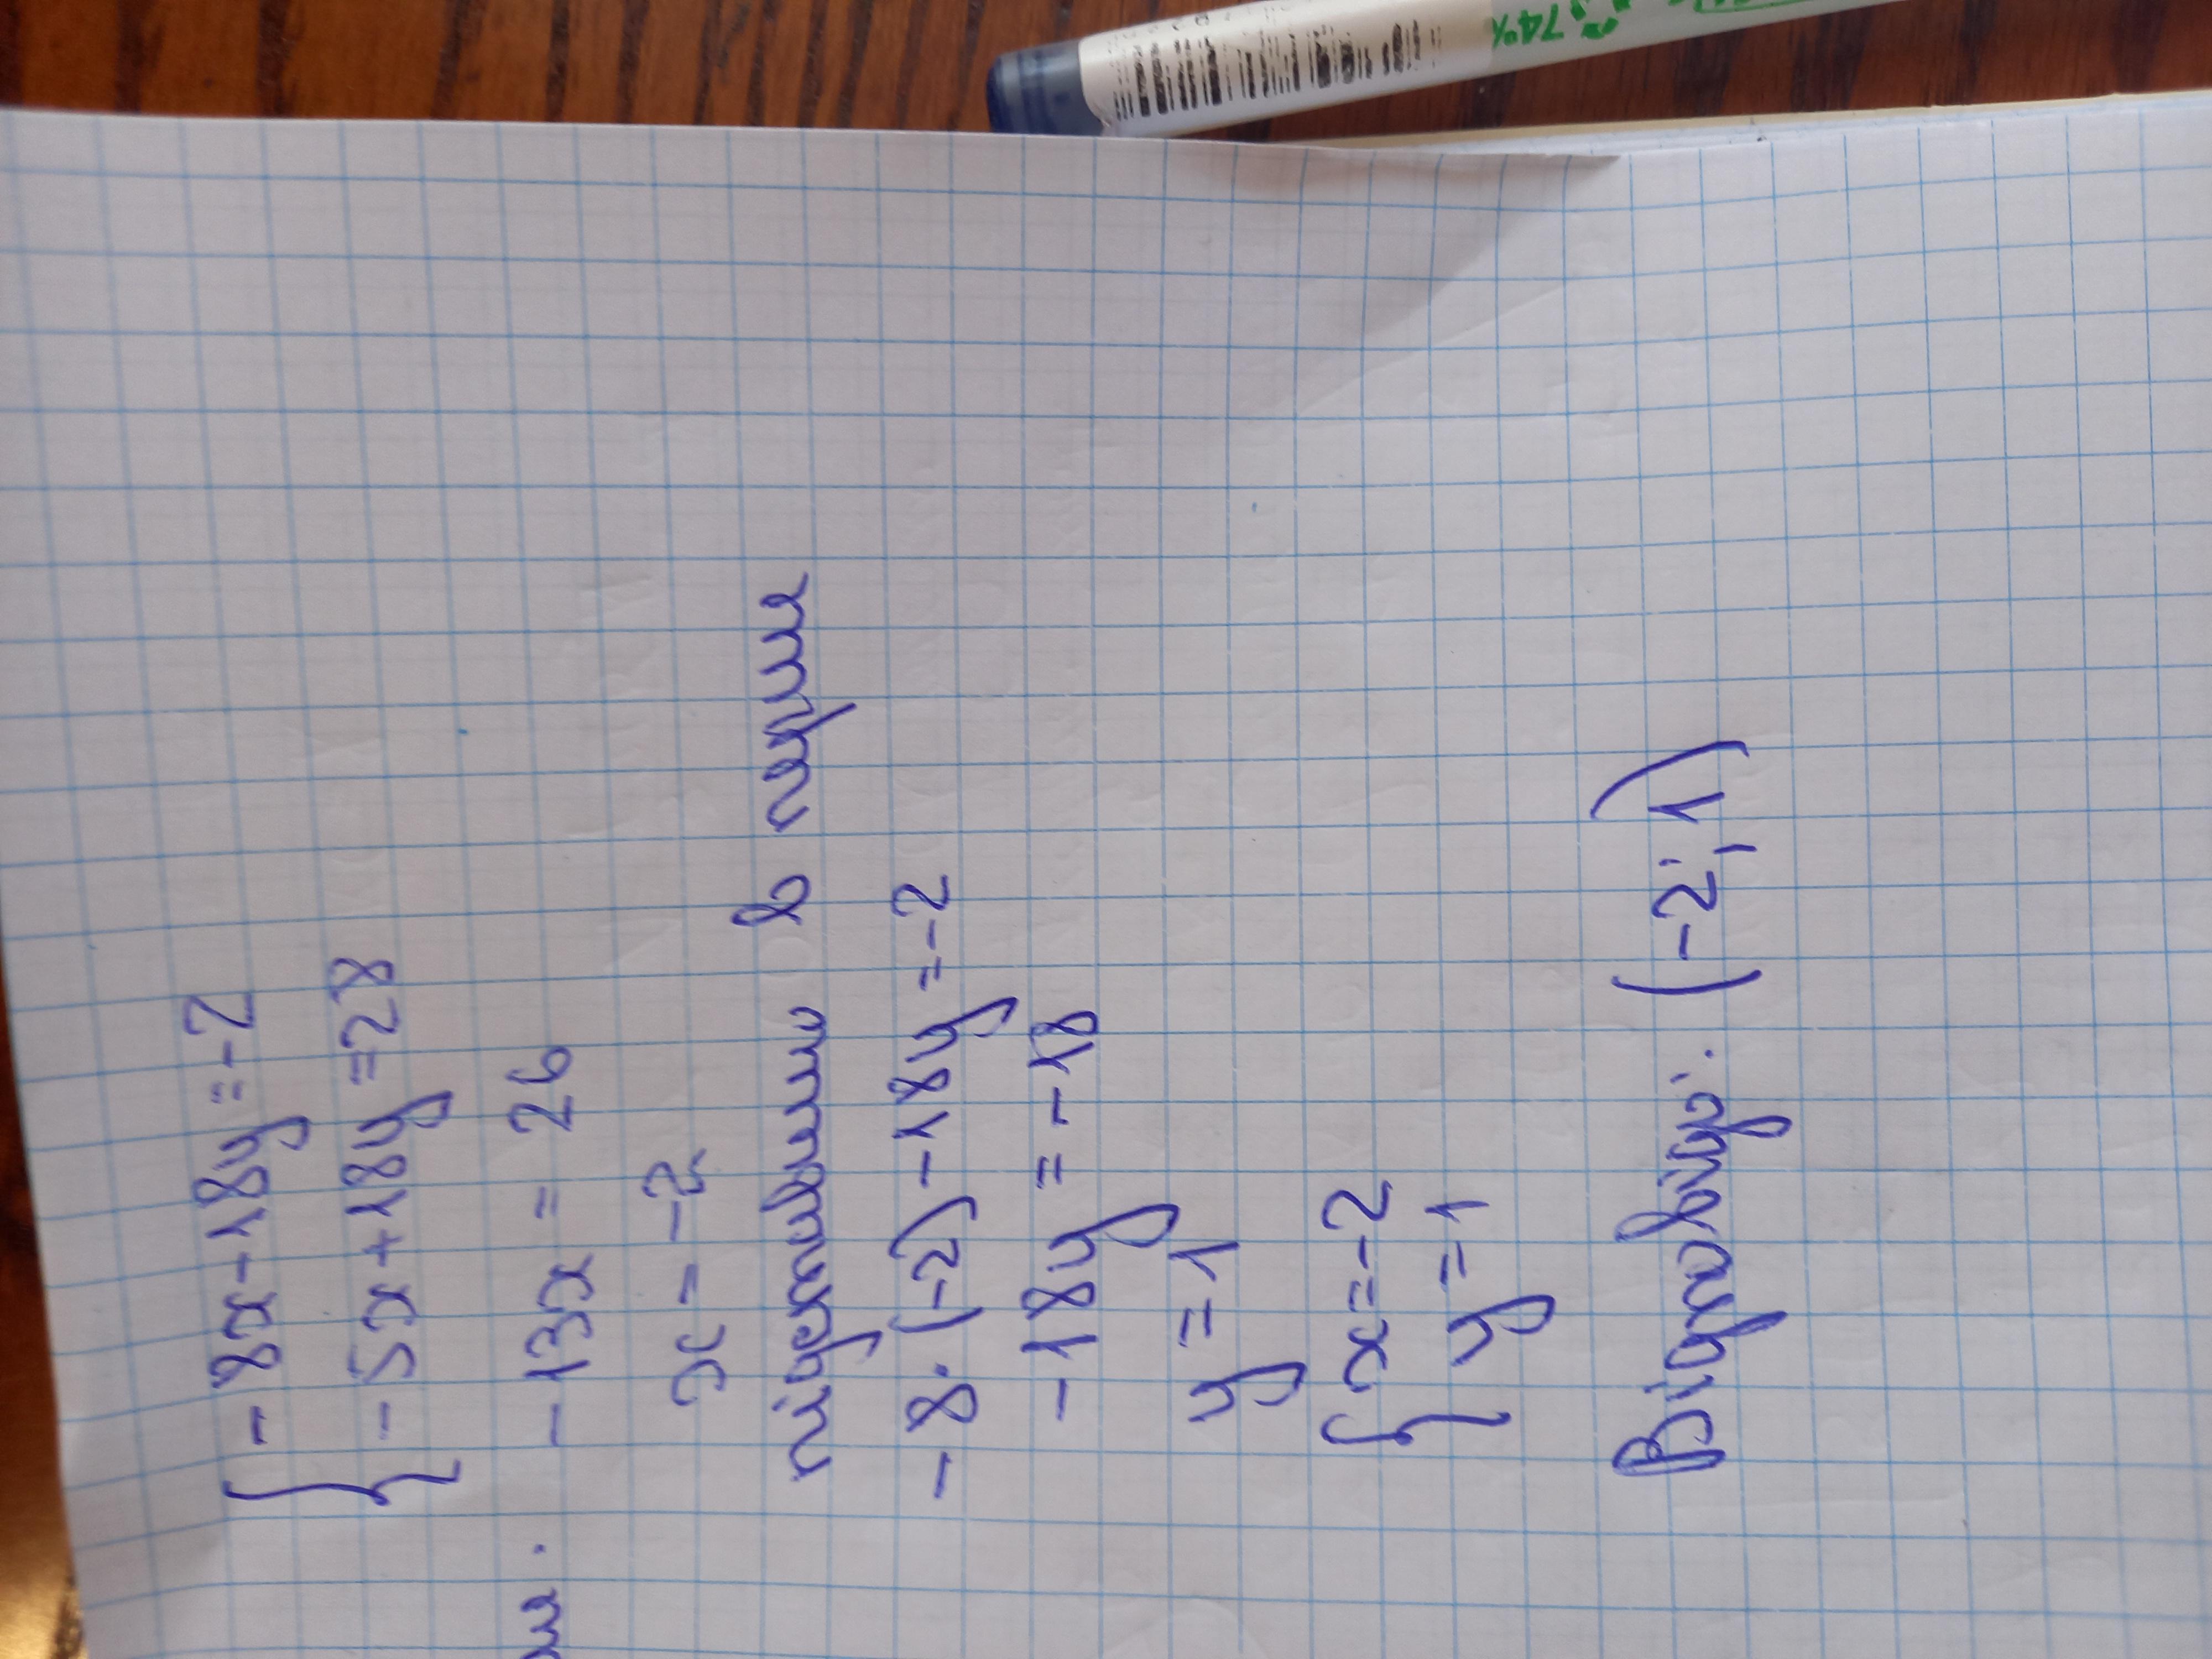 { -8x-18y=-2
-5x+18y=28
-13x = 26
x = -2
підставимо в перше
-8·(-2)-18y=-2
-18y = -18
y=1
{ x=-2
y=1
Відповідь: (-2;1)
74%